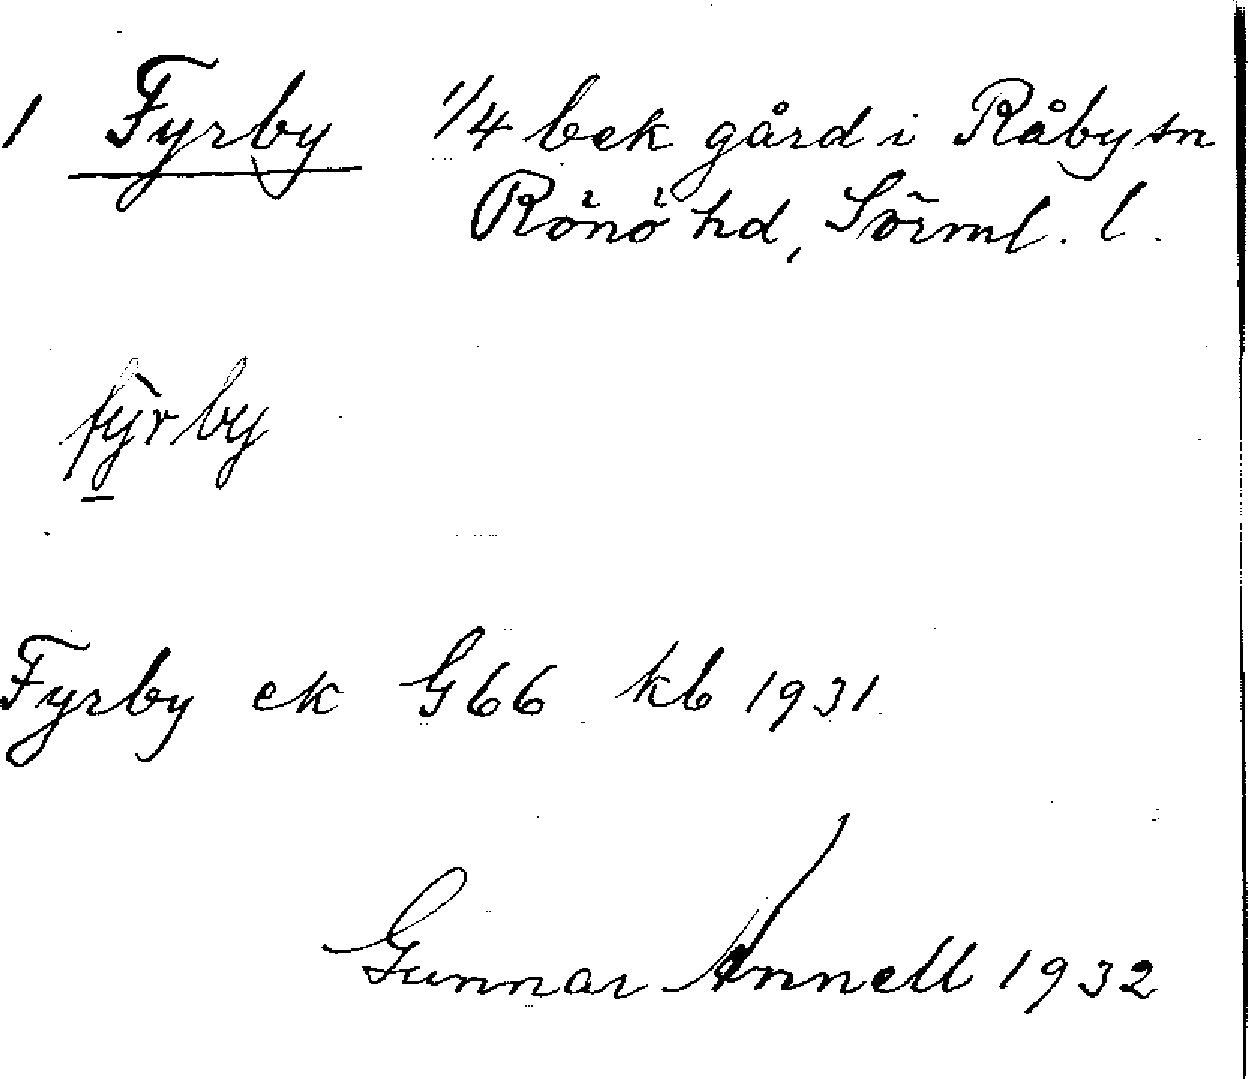 1 Fyrby 1/4 bek gård i Råby sn
Rönö hd, Sörml. l.
fỳ̱rby
Fyrby ek G66 kb 1931
Gunnar Annell 1932